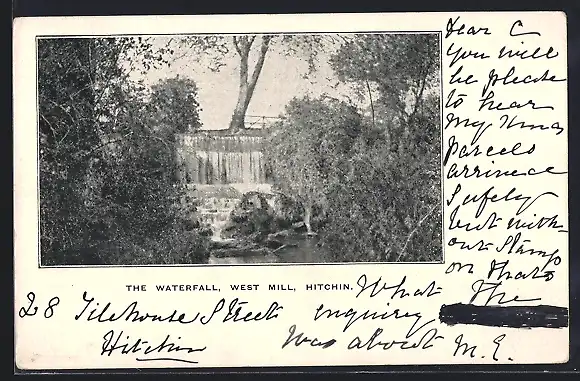 Dear C
You will
be please
to hear
My Xmas
Parcels
arrived
Safely
but with
out Stamp
on thats
What The
enquiry
was about M. E.
THE WATERFALL, WEST MILL, HITCHIN.
28 Tilehouse Street
Hitchin